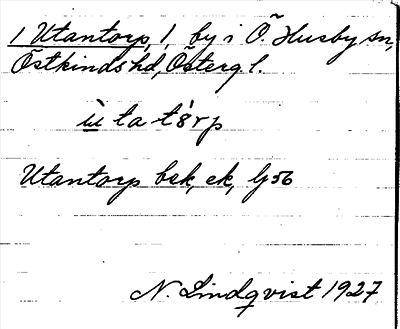 1 Utantorp, 1, by i Ö. Husby sn,
Östkinds hd, Östergl.
ù ta tòrp
Utantorp bsk, ek, Gj56
N. Lindqvist 1927